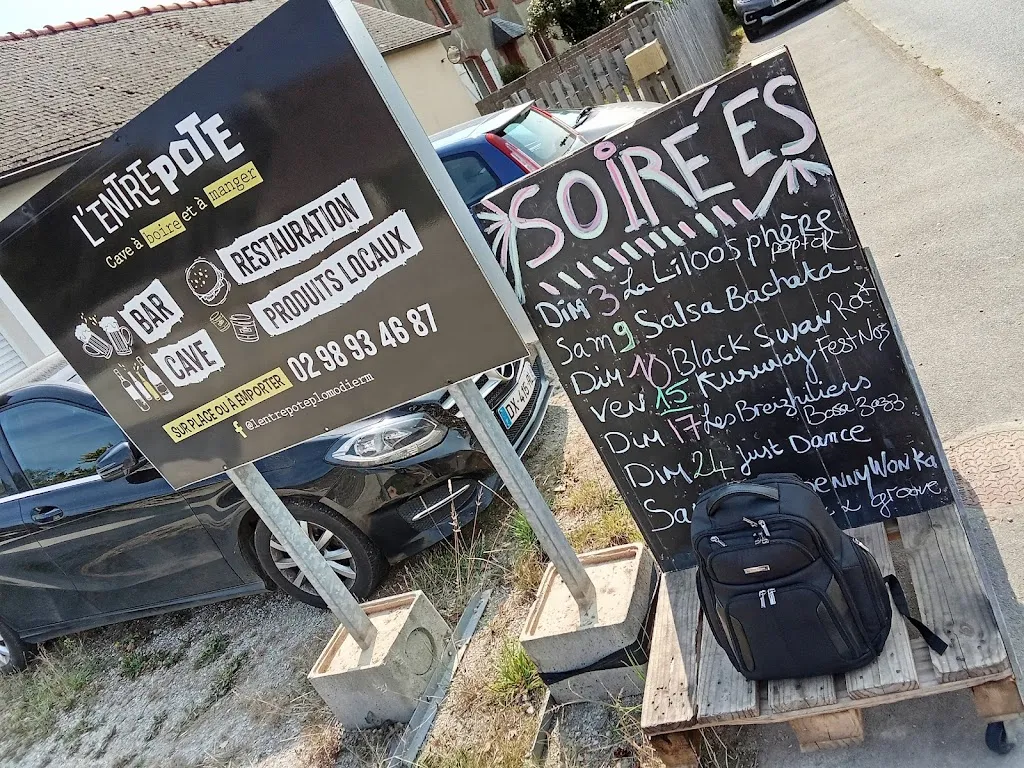 L'ENTREPÔTE
Cave à boire et à manger
BAR
RESTAURATION
CAVE
PRODUITS LOCAUX
SUR PLACE OU À EMPORTER
02 98 93 46 87
@lentrepoteplomodierm
SOIRÉES
DIM 3 La Liloosphère
POPFOLK
Sam 9 Salsa Bachata
DIM 10 Black Swan Rock
VEN 15 Kurunay Fest Noz
DIM 17 Les Breizhiliens
Bossa Jazz
DIM 24 Just Dance
Sa
ENNY WONKA
groove
DX-415